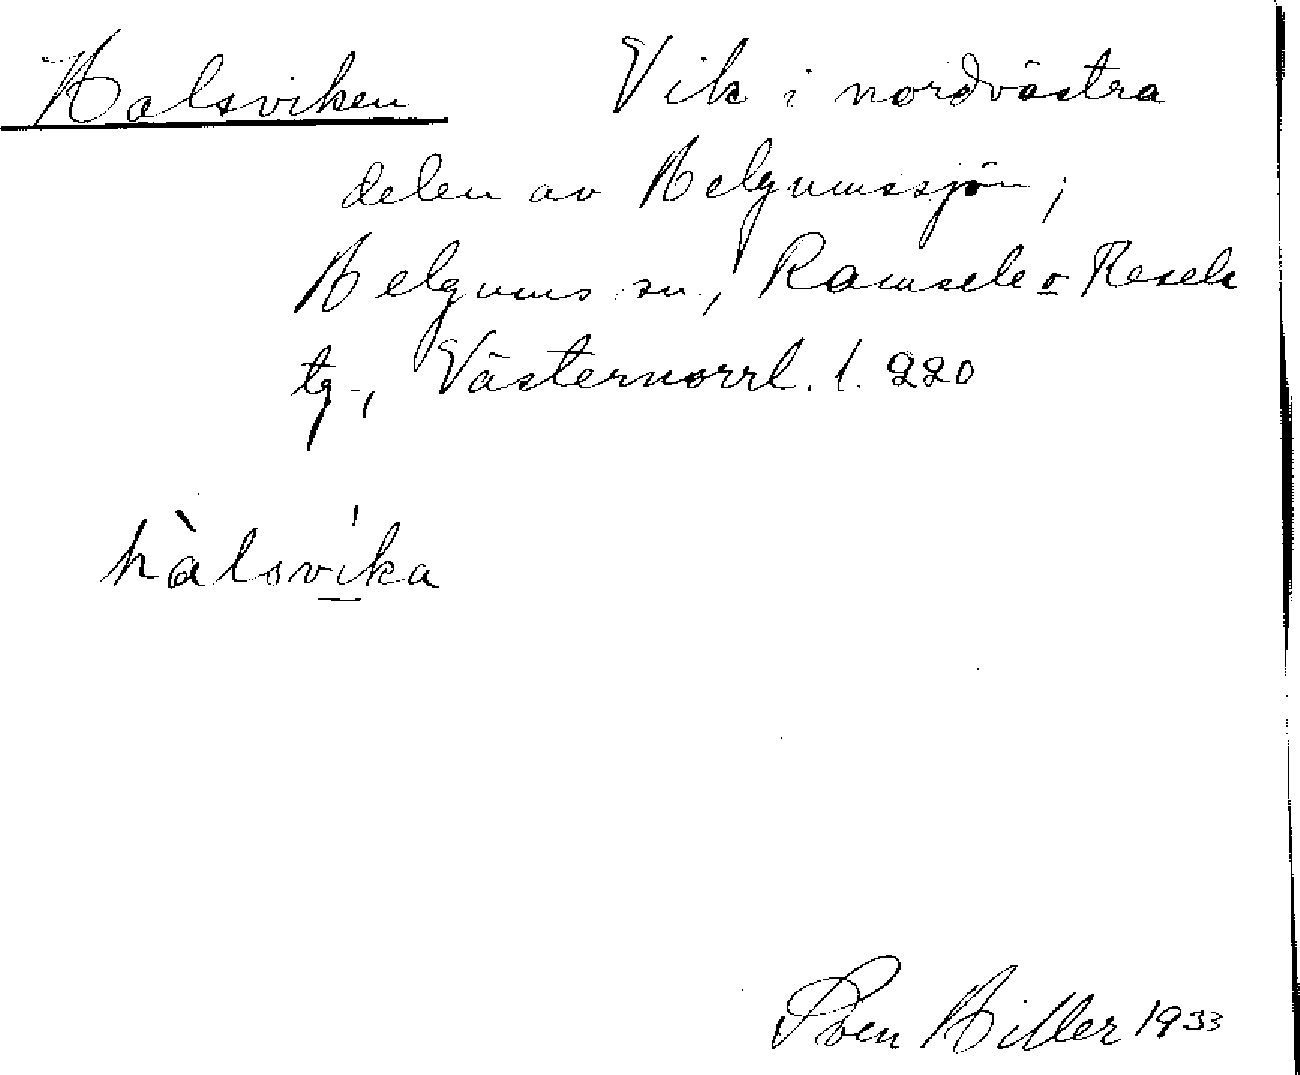 Halsviken Vik i nordvästra
delen av Helgumssjön,
Helgums sn, Ramsele o Resele
tg., Västernorrl. l. 220
hàlsvíka
Sven Hiller 1933